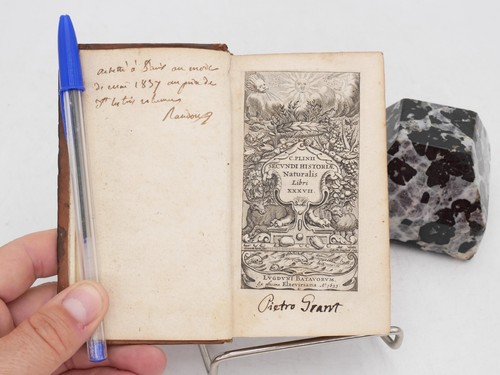 acheté à Paris au mois
de mai 1837 au prix de
C. PLINII
SECUNDI HISTORIÆ
Naturalis
Libri
XXXVII
LUGDUNI BATAVORUM,
Ex officina Elzeviriana. Aº 1635
Pietro Grant